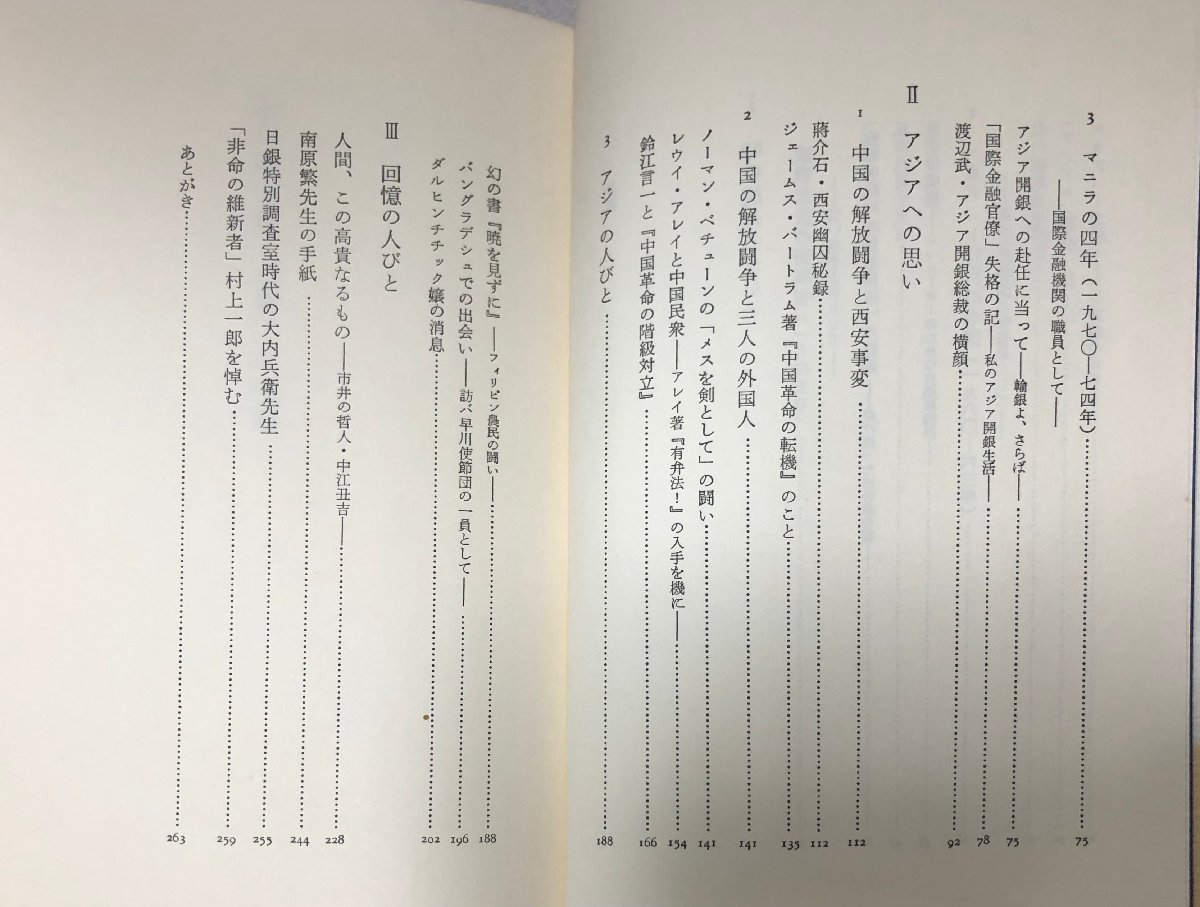 3 マニラの四年(一九七〇―七四年)……75
――国際金融機関の職員として――
アジア開銀への赴任に当って――輸銀よ、さらば――……75
「国際金融官僚」失格の記――私のアジア開銀生活――……78
渡辺武・アジア開銀総裁の横顔……92
Ⅱ アジアへの思い
1 中国の解放闘争と西安事変……112
蔣介石・西安幽囚秘録……112
ジェームス・バートラム著『中国革命の転機』のこと……135
2 中国の解放闘争と三人の外国人……141
ノーマン・ベチューンの「メスを剣として」の闘い……141
レウイ・アレイと中国民衆――アレイ著『有弁法!』の入手を機に――……154
鈴江言一と『中国革命の階級対立』……166
3 アジアの人びと……188
幻の書『暁を見ずに』――フィリピン農民の闘い――……188
バングラデシュでの出会い――訪バ早川使節団の一員として――……196
ダルヒンチチック嬢の消息……202
Ⅲ 回憶の人びと
人間、この高貴なるもの――市井の哲人・中江丑吉――……228
南原繁先生の手紙……244
日銀特別調査室時代の大内兵衛先生……255
「非命の維新者」村上一郎を悼む……259
あとがき……263